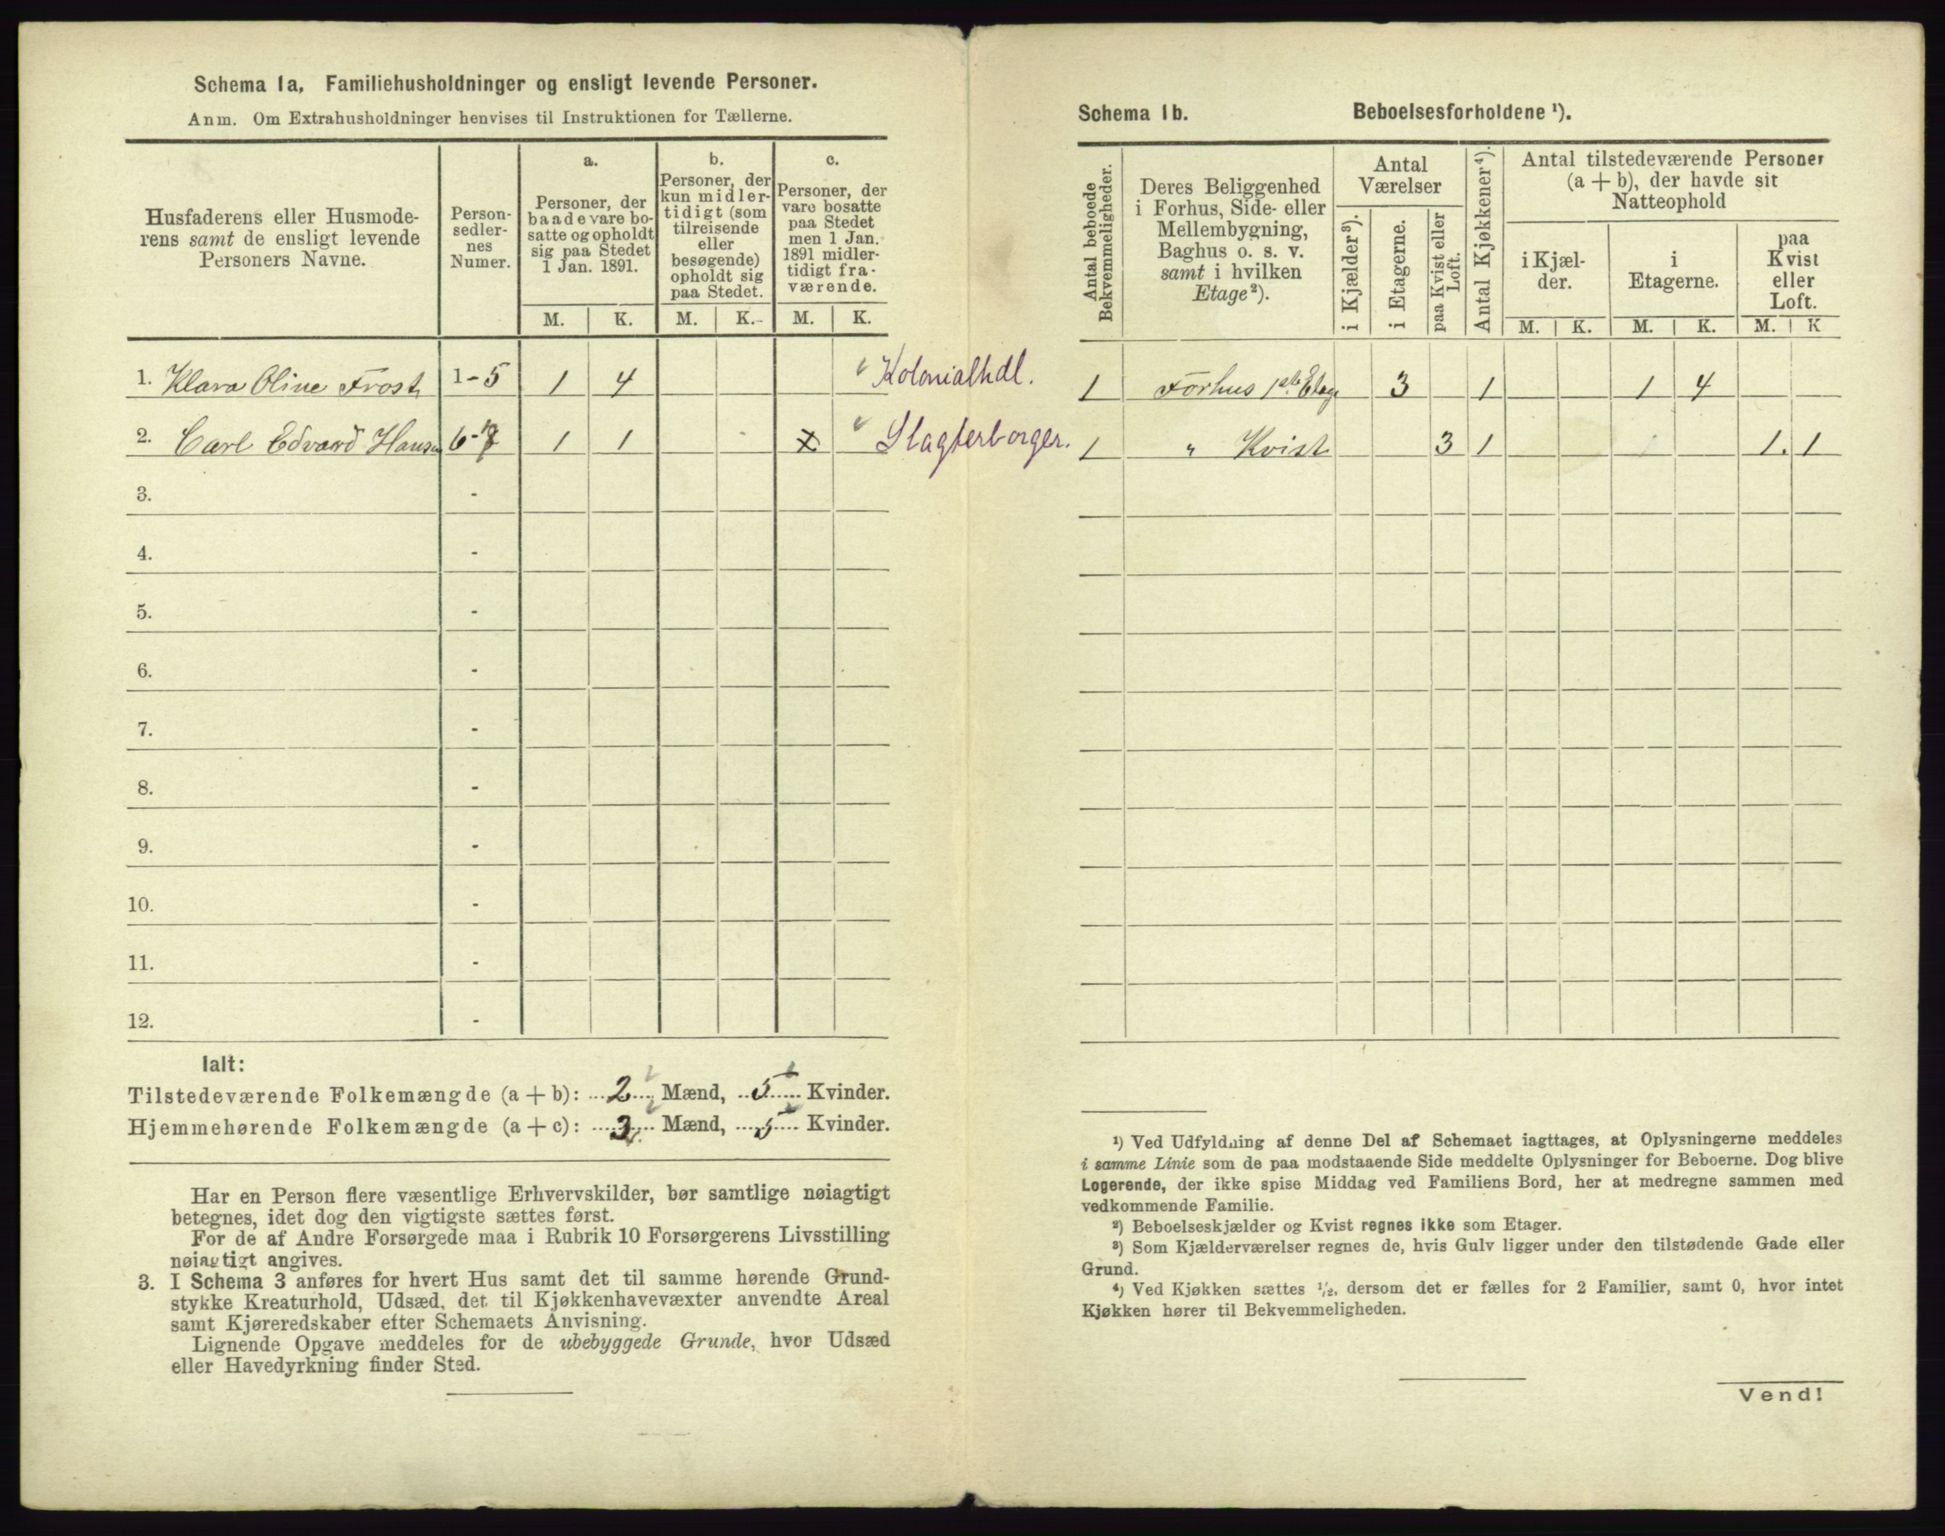 Schema 1a. Familiehusholdninger og ensligt levende Personer.
Anm. Om Extrahusholdninger henvises til Instruktionen for Tællerne.
Husfaderens eller Husmode-
rens samt de ensligt levende
Personers Navne.
Person-
sedler-
nes
Numer.
a.
Personer, der
baade vare bo-
satte og opholdt
sig paa Stedet
1 Jan. 1891.
b.
Personer, der
kun midler-
tidigt (som
tilreisende
eller
besøgende)
opholdt sig
paa Stedet.
c.
Personer, der
vare bosatte
paa Stedet
men 1 Jan.
1891 midler-
tidigt fra-
værende.
M. K. M. K. M. K.
1. Klara Oline Frost 1-5 1 4 Kolonialhdl.
2. Carl Edvard Hansen 6- 1 1 x Slagterborger.
3. -
4. -
5. -
6. -
7. -
8. -
9. -
10. -
11. -
12. -
Ialt:
Tilstedeværende Folkemængde (a + b): 2 Mænd, 5 Kvinder.
Hjemmehørende Folkemængde (a + c): 3 Mænd, 5 Kvinder.
Har en Person flere væsentlige Erhvervskilder, bør samtlige nøiagtigt
betegnes, idet dog den vigtigste sættes først.
For de af Andre Forsørgede maa i Rubrik 10 Forsørgerens Livsstilling
nøiagtigt angives.
3. I Schema 3 anføres for hvert Hus samt det til samme hørende Grund-
stykke Kreaturhold, Udsæd, det til Kjøkkenhavevæxter anvendte Areal
samt Kjøreredskaber efter Schemaets Anvisning.
Lignende Opgave meddeles for de ubebyggede Grunde, hvor Udsæd
eller Havedyrkning finder Sted.
Schema 1b. Beboelsesforholdene ¹).
Antal beboede
Bekvemmeligheder.
Deres Beliggenhed
i Forhus, Side- eller
Mellembygning,
Baghus o. s. v.
samt i hvilken
Etage²).
Antal
Værelser
i Kjælder³).
i Etagerne.
paa Kvist eller
Loft.
Antal Kjøkkener⁴).
Antal tilstedeværende Personer
(a + b), der havde sit
Natteophold
i Kjæl-
der.
i
Etagerne.
paa
Kvist
eller
Loft.
M. K. M. K. M. K
1 Forhus 1ste Etage 3 1 1 4
1 " Kvist 3 1 1. 1
¹) Ved Udfyldning af denne Del af Schemaet iagttages, at Oplysningerne meddeles
i samme Linie som de paa modstaaende Side meddelte Oplysninger for Beboerne. Dog blive
Logerende, der ikke spise Middag ved Familiens Bord, her at medregne sammen med
vedkommende Familie.
²) Beboelseskjælder og Kvist regnes ikke som Etager.
³) Som Kjælderværelser regnes de, hvis Gulv ligger under den tilstødende Gade eller
Grund.
⁴) Ved Kjøkken sættes ½, dersom det er fælles for 2 Familier, samt 0, hvor intet
Kjøkken hører til Bekvemmeligheden.
Vend!